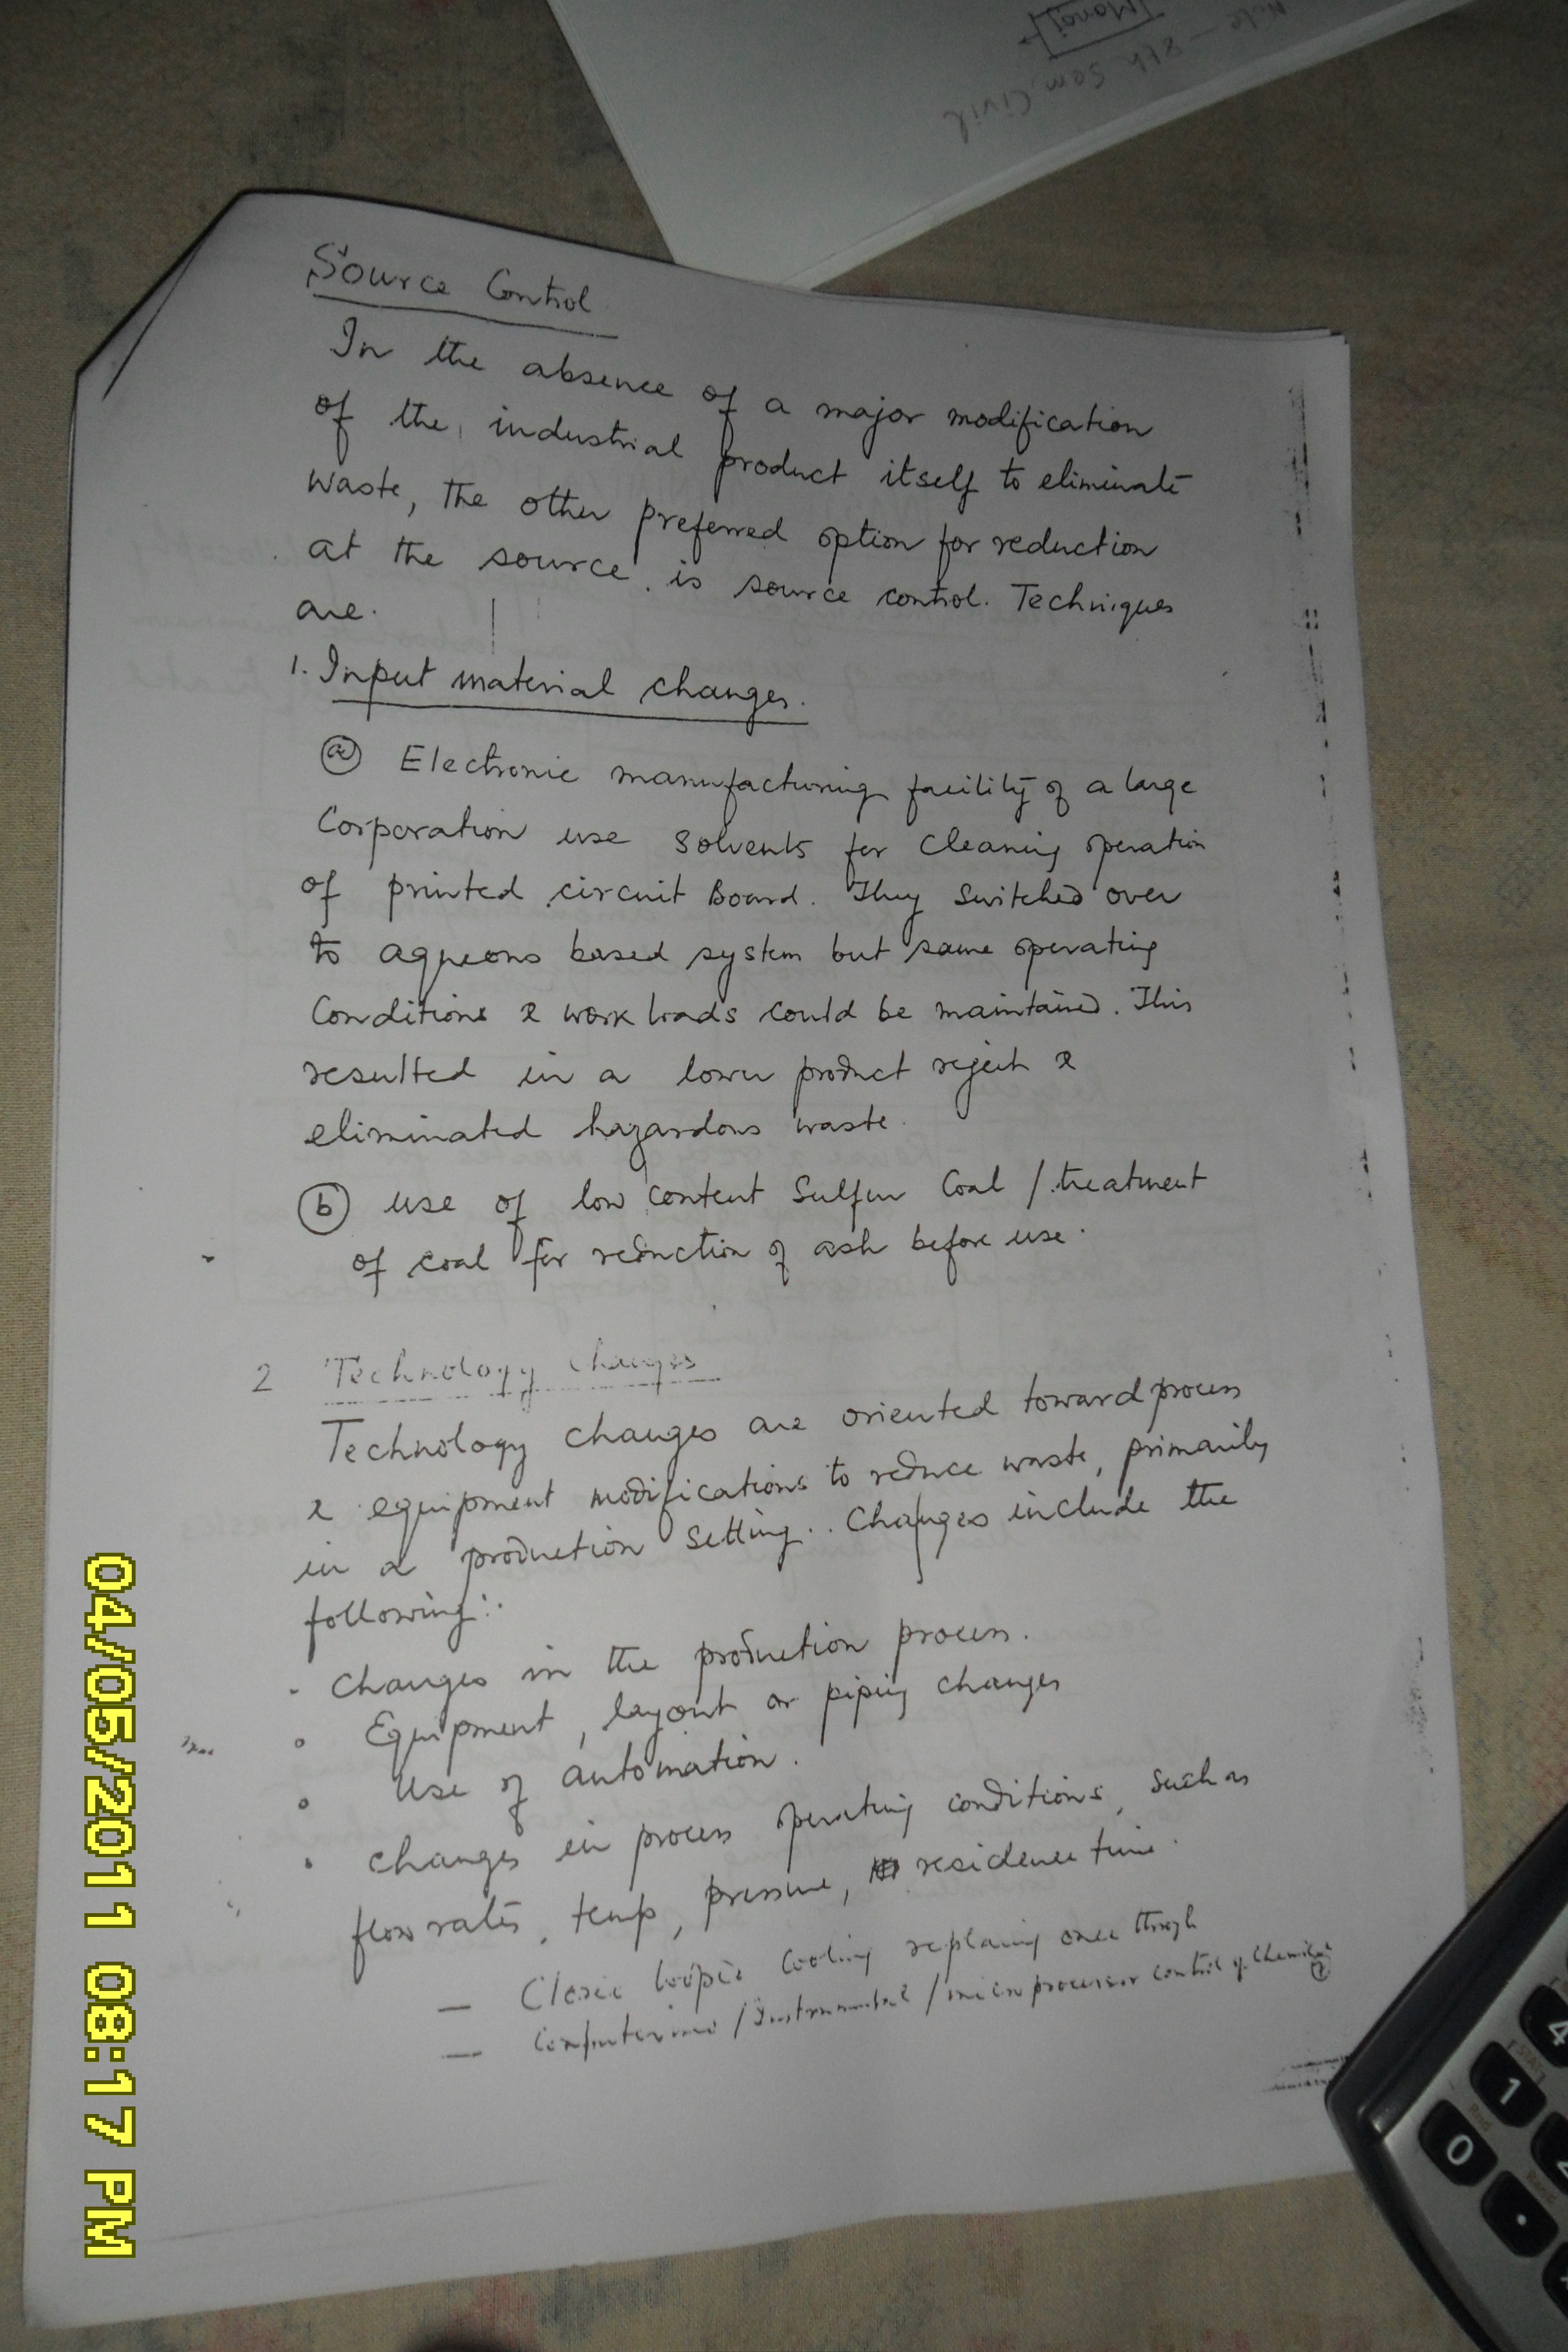 8th Sem. Civil
Source Control
In the absence of a major modification
of the industrial product itself to eliminate
waste, the other preferred option for reduction
at the source is source control. Techniques
are.
1. Input material changes.
(a) Electronic manufacturing facility of a large
Corporation use solvents for cleaning operation
of printed circuit Board. They switched over
to aqueous based system but same operating
Conditions & work loads could be maintained. This
resulted in a lower product reject &
eliminated hazardous waste.
(b) use of low content Sulfur Coal / treatment
of coal for reduction of ash before use.
2 Technology changes
Technology changes are oriented toward process
& equipment modifications to reduce waste, primarily
in a production setting. Changes include the
following:.
- Changes in the production process.
° Equipment, layout or piping changes
° Use of automation.
• changes in process operating conditions, such as
flow rates, temp, pressure, residence time.
— cooling replacing once through
— / / microprocessor control of chemical
04/05/2011 08:17 PM
4
1
0
.